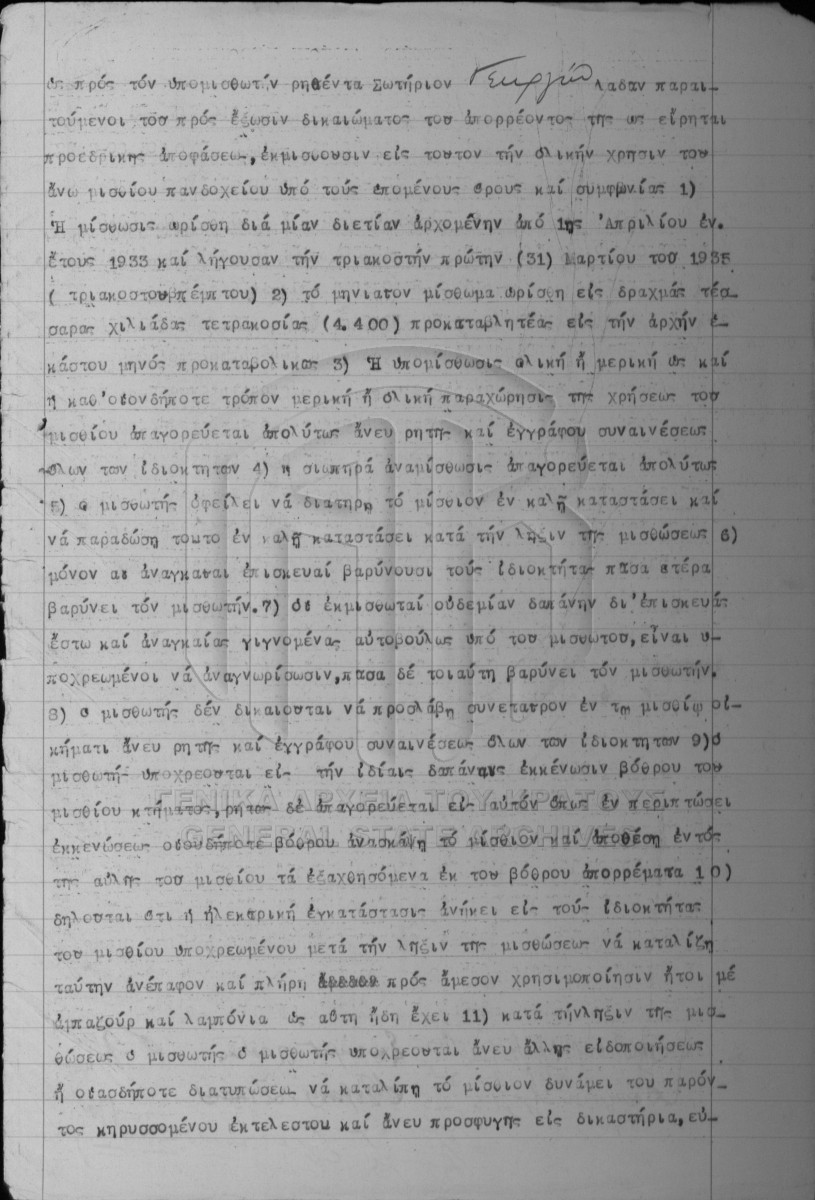 ως πρός τόν υπομισθωτήν ρηθέντα Σωτήριον Γεωργίου Λαδαν παραι-
τούμενοι του πρός ἔξωσιν δικαιώματος του ἀπορρέοντος της ως εἴρηται
προεδρικης ἀποφάσεως,ἐκμισθουσιν εἰς τουτον τήν ολικήν χρησιν του
ἄνω μισθίου πανδοχείου ὑπό τούς επομένους ορους καί συμφωνίας 1)
Ἡ μίσθωσις ωρίσθη διά μίαν διετίαν ἀρχομένην ἀπό 1ης Ἀπριλίου ἐν.
ἔτους 1933 καί λήγουσαν τήν τριακοστήν πρώτην (31) Μαρτίου του 1935
( τριακοστουβπέμπτου) 2) τό μηνιατον μίσθωμα ωρίσθη εἰς δραχμάς τέσ-
σαρας χιλιάδας τετρακοσίας (4.400) προκαταβλητέας εἰς τήν ἀρχήν ἑ-
κάστου μηνός προκαταβολικως 3) Ἡ υπομίσθωσις ολική ἤ μερική ως καί
η καθ'οιονδήποτε τρόπον μερική ἤ ολική παραχώρησις της χρήσεως του
μισθίου ἀπαγορεύεται ἀπολύτως ἄνευ ρητης καί ἐγγράφου συναινέσεως
ὅλων των ἰδιοκτητων 4) η σιωπηρά ἀναμίσθωσις ἀπαγορεύεται ἀπολύτως
5) ο μισθωτής ὀφείλει νά διατηρῃ τό μίσθιον ἐν καλῇ καταστάσει καί
νά παραδώσῃ τουτο ἐν καλῇ καταστάσει κατά τήν ληξιν της μισθώσεως 6)
μόνον αι ἀναγκαιαι ἐπισκευαί βαρύνουσι τούς ἰδιοκτήτας πασα ετέρα
βαρύνει τόν μισθωτήν.7) Οι ἐκμισθωταί οὐδεμίαν δαπάνην δι'ἐπισκευάς
ἔστω καί ἀναγκαίας γιγνομένας αὐτοβούλως υπό του μισθωτου,εἶναι υ-
ποχρεωμένοι νά ἀναγνωρίσωσιν,πασα δέ τοιαύτη βαρύνει τόν μισθωτήν.
8) ο μισθωτής δέν δικαιουται νά προσλάβῃ συνεταιρον ἐν τῳ μισθίῳ οἰ-
κήματι ἄνευ ρητης καί ἐγγράφου συναινέσεως ὅλων των ἰδιοκτητων 9)ὁ
μισθωτής υποχρεουται εἰς τήν ἰδίαις δαπάναις ἐκκένωσιν βόθρου του
μισθίου κτήματος,ρητως δέ ἀπαγορεύεται εἰς αὐτόν ὅπως ἐν περιπτώσει
ἐκκενώσεως οιουδήποτε βόθρου ἀνασκάψῃ τό μίσθιον καί ἀποθέσῃ ἐντός
της αὐλης του μισθίου τά ἐξαχθησόμενα ἐκ του βόθρου ἀπορρέματα 10)
δηλουται ὅτι η ἠλεκτρική ἐγκατάστασις ἀνήκει εἰς τούς ἰδιοκτήτας
του μισθίου υποχρεωμένου μετά τήν ληξιν της μισθώσεως νά καταλίζῃ
ταύτην ἀνέπαφον καί πλήρη πρός ἄμεσον χρησιμοποίησιν ἤτοι μέ
ἀμπαζούρ καί λαμπόνια ως αὕτη ἤδη ἔχει 11) κατά τήνληξιν της μισ-
θώσεως ο μισθωτής ο μισθωτής υποχρεουται ἄνευ ἄλλης εἰδοποιήσεως
ἤ οιασδήποτε διατυπώσεως νά καταλίπῃ τό μίσθιον δυνάμει του παρόν-
τος κηρυσσομένου ἐκτελεστου καί ἄνευ προσφυγης εἰς δικαστήρια,εὐ-
ΓΕΝΙΚΑ ΑΡΧΕΙΑ ΤΟΥ ΚΡΑΤΟΥΣ
GENERAL STATE ARCHIVES